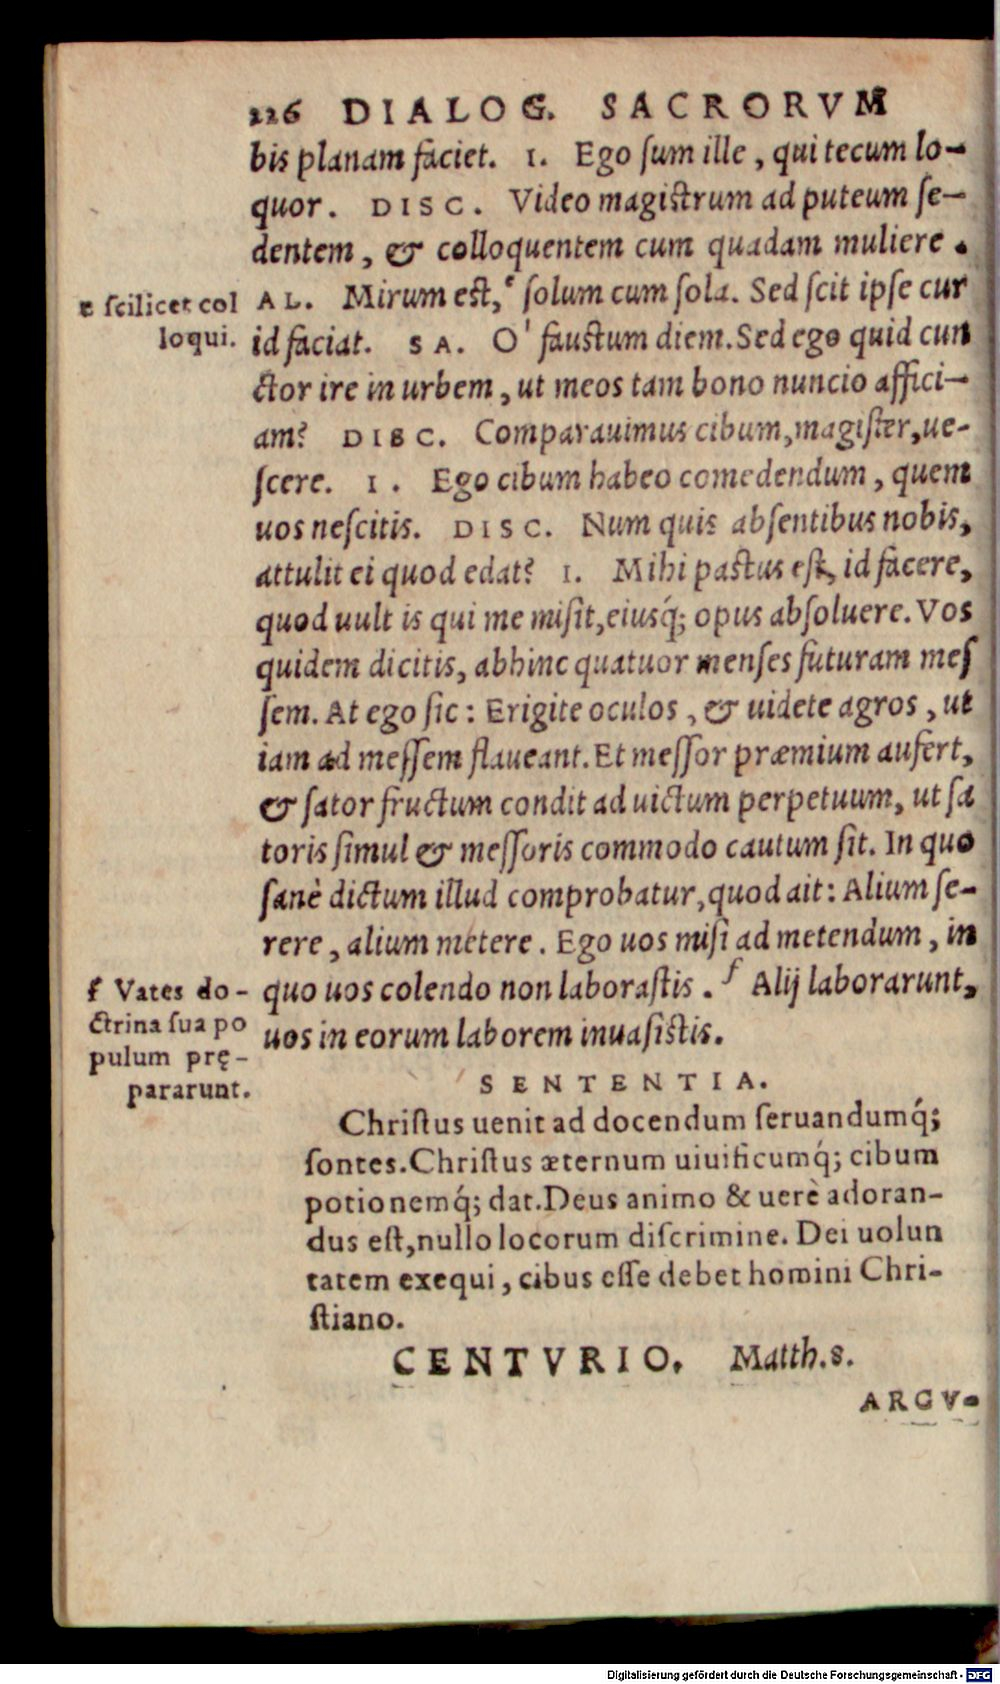 226 DIALOG. SACRORVM
bis planam faciet. I. Ego ſum ille, qui tecum lo-
quor. DISC. Video magiſtrum ad puteum ſe-
dentem, & colloquentem cum quadam muliere.
e ſcilicet col
loqui.
AL. Mirum eſt, e ſolum cum ſola. Sed ſcit ipſe cur
id faciat. SA. O' fauſtum diem. Sed ego quid cun
ctor ire in urbem, ut meos tam bono nuncio affici-
am? DISC. Comparauimus cibum, magiſter, ue-
ſcere. I. Ego cibum habeo comedendum, quem
uos neſcitis. DISC. Num quis abſentibus nobis,
attulit ei quod edat? I. Mihi paſtus eſt, id facere,
quod uult is qui me miſit, eiusq́; opus abſoluere. Vos
quidem dicitis, abhinc quatuor menſes futuram meſ
ſem. At ego ſic: Erigite oculos, & uidete agros, ut
iam ad meſſem flaueant. Et meſſor præmium aufert,
& ſator fructum condit ad uictum perpetuum, ut ſa
toris ſimul & meſſoris commodo cautum ſit. In quo
ſanè dictum illud comprobatur, quod ait: Alium ſe-
rere, alium metere. Ego uos miſi ad metendum, in
quo uos colendo non laboraſtis. f Alij laborarunt,
uos in eorum laborem inuaſiſtis.
f Vates do-
ctrina ſua po
pulum prę-
pararunt.
SENTENTIA.
Chriſtus uenit ad docendum ſeruandumq́;
ſontes. Chriſtus æternum uiuificumq́; cibum
potionemq́; dat. Deus animo & uerè adoran-
dus eſt, nullo locorum diſcrimine. Dei uolun
tatem exequi, cibus eſſe debet homini Chri-
ſtiano.
CENTVRIO. Matth.8.
ARGV-
Digitalisierung gefördert durch die Deutsche Forschungsgemeinschaft - DFG